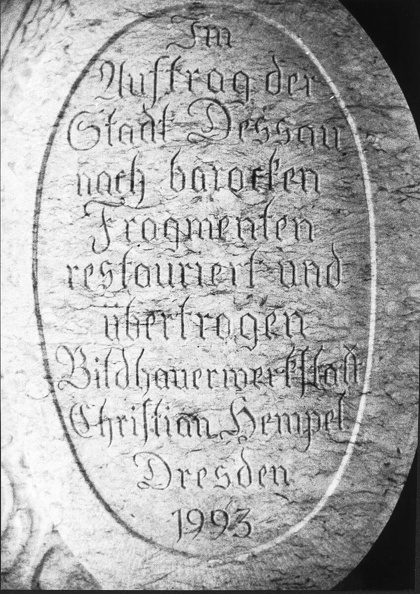 Im
Auftrag der
Stadt Dessau
nach barocken
Fragmenten
restauriert und
übertragen
Bildhauerwerkstatt
Christian Hempel
Dresden
1993